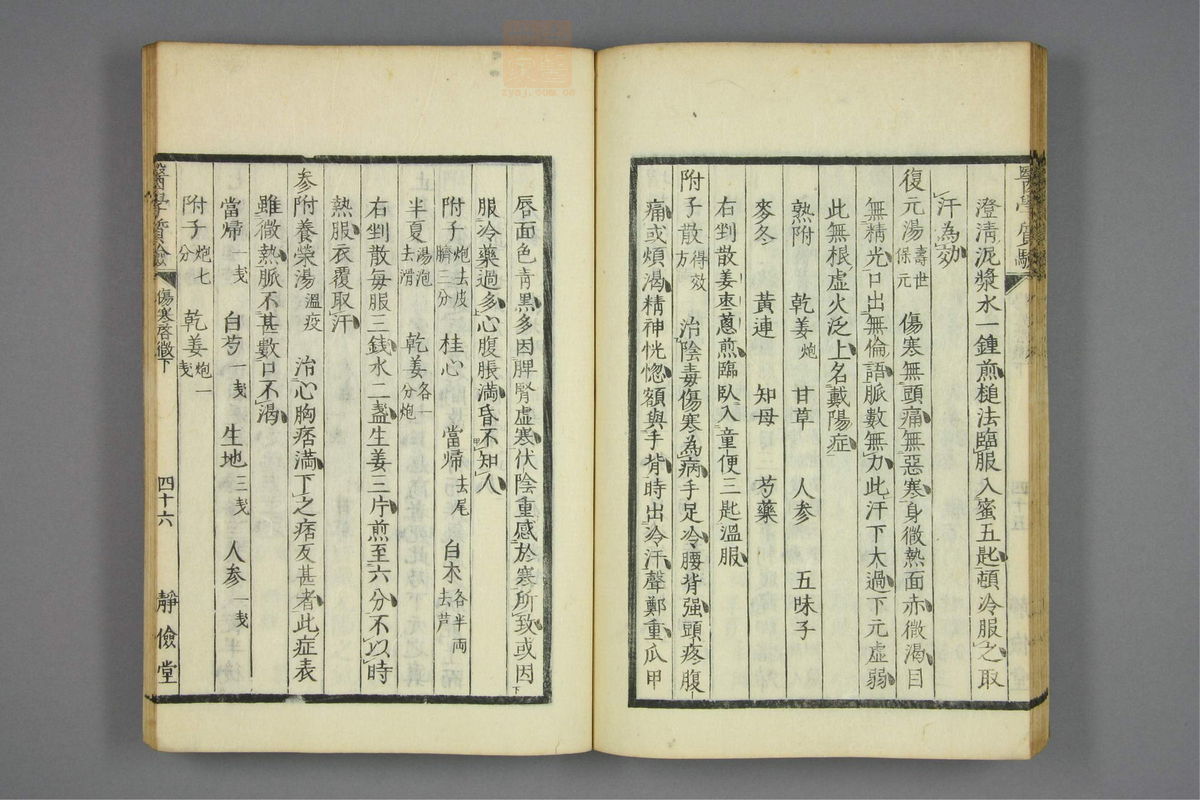 澄清泥漿水一鍾煎槌法臨服入蜜五匙頓冷服之取
汗為効
復元湯壽世保元 傷寒無頭痛無惡寒身微熱面赤微渴目
無精光口出無倫語脈數無力此汗下太過下元虛弱
此無根虛火泛上名戴陽症
熟附 乾姜炮 甘草 人参 五味子
麥冬 黃連 知母 芍藥
右剉散姜枣蔥煎臨臥入童便三匙溫服
附子散得效方 治陰毒傷寒為病手足冷腰背强頭疼腹
痛或煩渴精神恍惚額與手背時出冷汗聲鄭重瓜甲
唇面色青黑多因脾腎虛寒伏陰重感於寒所致或因
服冷藥過多心腹脹満昏不知人
附子炮去皮臍三分 桂心 當帰去尾 白木各半両去芦
半夏湯泡去滑 乾姜各一分炮
右剉散每服三錢水二盞生姜三片煎至六分不以時
熱服衣覆取汗
参附養榮湯溫疫 治心胸痞満下之痞反甚者此症表
雖微熱脈不甚數口不渴
當帰一戔 白芍一戔 生地三戔 人参一戔
附子炮七分 乾姜炮一戔
醫學質驗 傷寒啓微下 四十六 靜儉堂